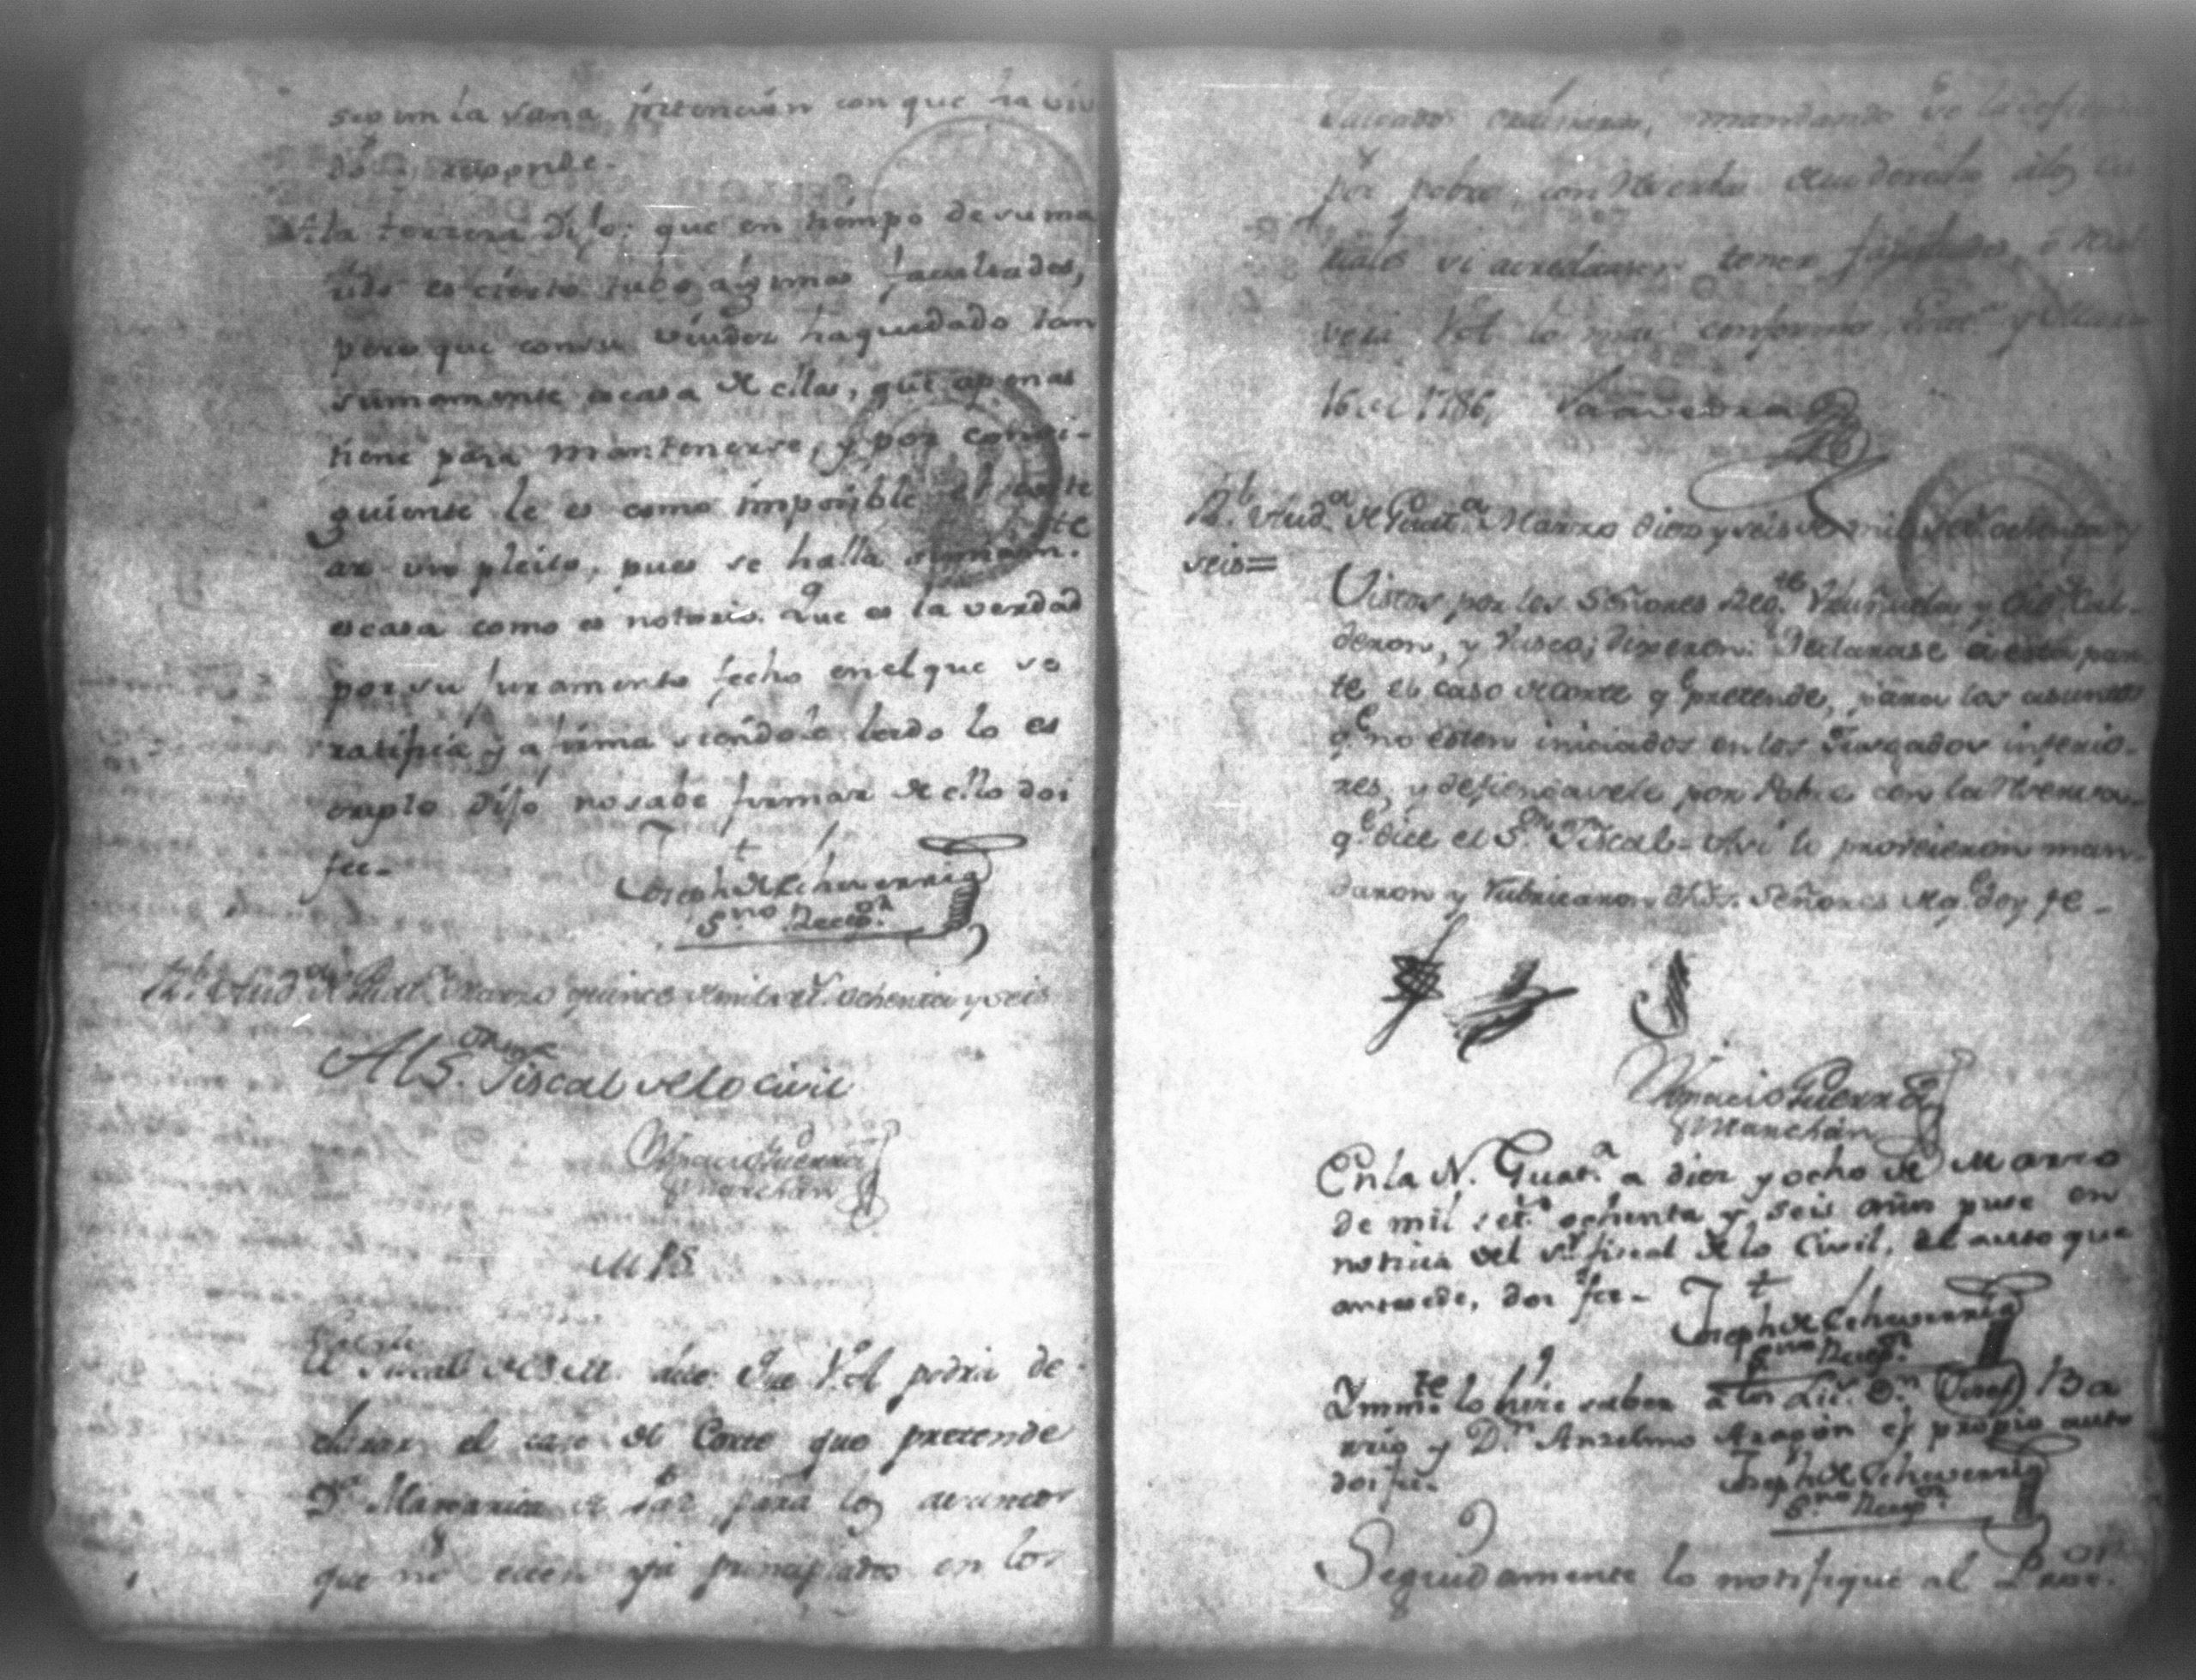 segun la vana pretencion con que ha vivi
do responde.
A la tercera Dijo: que en tiempo de su ma
rido es cierto tubo algunas facultades,
pero que con su viudez ha quedado tan
sumamente escasa de ellas, que apenas
tiene para mantenerse, y por consi-
guiente le es como imposible el coste
ar un pleito, pues se halla sumam.te
escasa como es notorio. Que es la verdad
por su juramento fecho en el que se
ratifica y afirma siendole leido lo es
cripto dijo no sabe firmar de ello doi
fee.
Joseph de Echeverria
S.no Recep.r
R.l Aud.a de Guat.a Marzo quince de mil set. ochenta y seis
Al S.or Fiscal de lo Civil
Ignacio Guerra
Marchán
M P S
El Fiscal de S M dice: Que V.A. podrá de
clarar el caso de Corte que pretende
D.a de Paz para los asuntos
que no esten ya principiados en los
Juzgados ordinarios, mandando se la defienda
por pobre, con
si tener
vera V.A. lo mas conforme Guat.a y Marzo
16 de 1786, Saavedra
R.l Aud.a de Guat.a Marzo diez y seis de mil set. ochenta y
seis=
Vistos por los Señores Reg.te y Cal-
deron, y Vasco; Dixeron: Declarase a esta par
te el caso de Corte q.e pretende, para los asuntos
q.e no esten iniciados en los Juzgados inferio-
res, y defiendasele por Pobre con la Reserva
q.e dice el S.or Fiscal. Asi lo proveieron man-
daron y rubricaron dhos. Señores de q.e doy fe.
Ignacio Guerra
Marchán
En la N. Guat.a a diez y ocho de Marzo
de mil set.s ochenta y seis años puse en
noticia del S.r fiscal de lo Civil, el auto que
antecede, doi fee.
Joseph de Echeverria
S.no Recep.r
Ynm.te lo hice saber a los Lic. D.n Josef Ba
rrio y D.n Anselmo Aragón el propio auto
doi fee.
Joseph de Echeverria
S.no Recep.r
Seguidamente lo notifique al Pror.